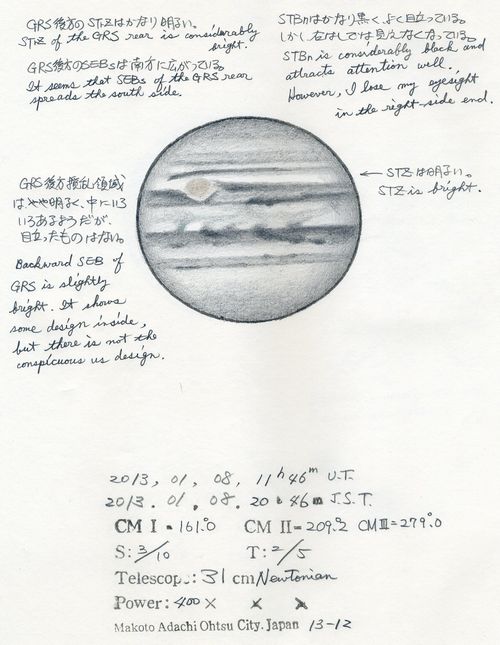 GRS後方のSTrZはかなり明るい。
STrZ of the GRS rear is considerably
bright.
GRS後方のSEBsは南方に広がっている。
It seems that SEBs of the GRS rear
spreads the south side.
STBnはかなり黒く、よく目立っている。
しかし、右はしでは見えなくなっている。
STBn is considerably black and
attracts attention well.
However, I lose my eyesight
in the right-side end.
← STZは明るい。
STZ is bright.
GRS後方攪乱領域
はやや明るく、中にいろ
いろあるようだが、
目立ったものはない。
Backward SEB of
GRS is slightly
bright. It shows
some design inside,
but there is not the
conspicuous us design.
2013, 01, 08, 11h 46m U.T.
2013. 01. 08. 20h 46m J.S.T.
CM I = 161.°0 CM II = 209.°2 CM III = 279.°0
S: 3/10 T: 2/5
Telescop.: 31 cm Newtonian
Power: 400 × × ×
Makoto Adachi Ohtsu City. Japan 13-12